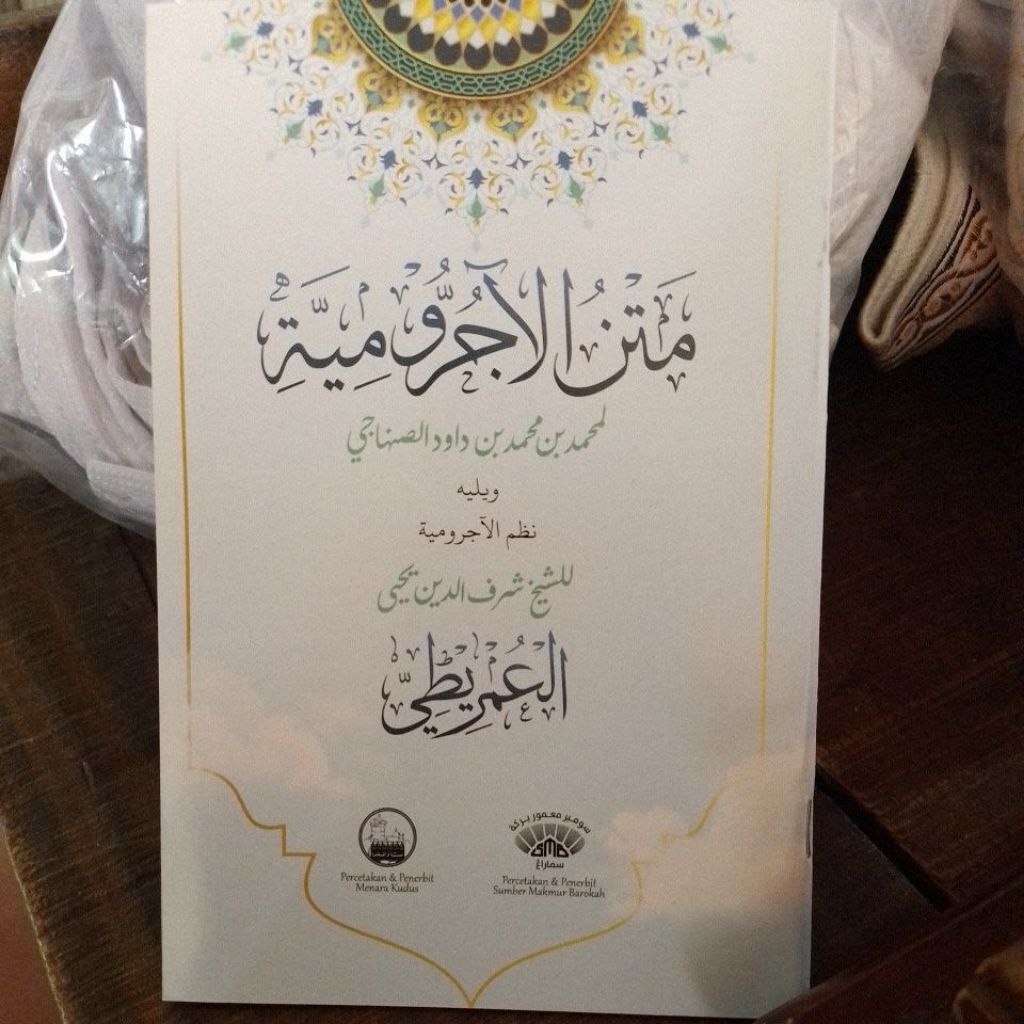 مَتْنُ الْآجُرُّومِيَّةِ
لمحمد بن محمد بن داود الصنهاجي
ويليه
نظم الآجرومية
للشيخ شرف الدين يحيى
الْعُمْرِيْطِيِّ
Percetakan & Penerbit
Menara Kudus
سومبر معمور بركة
SMB
سماراڠ
Percetakan & Penerbit
Sumber Makmur Barokah